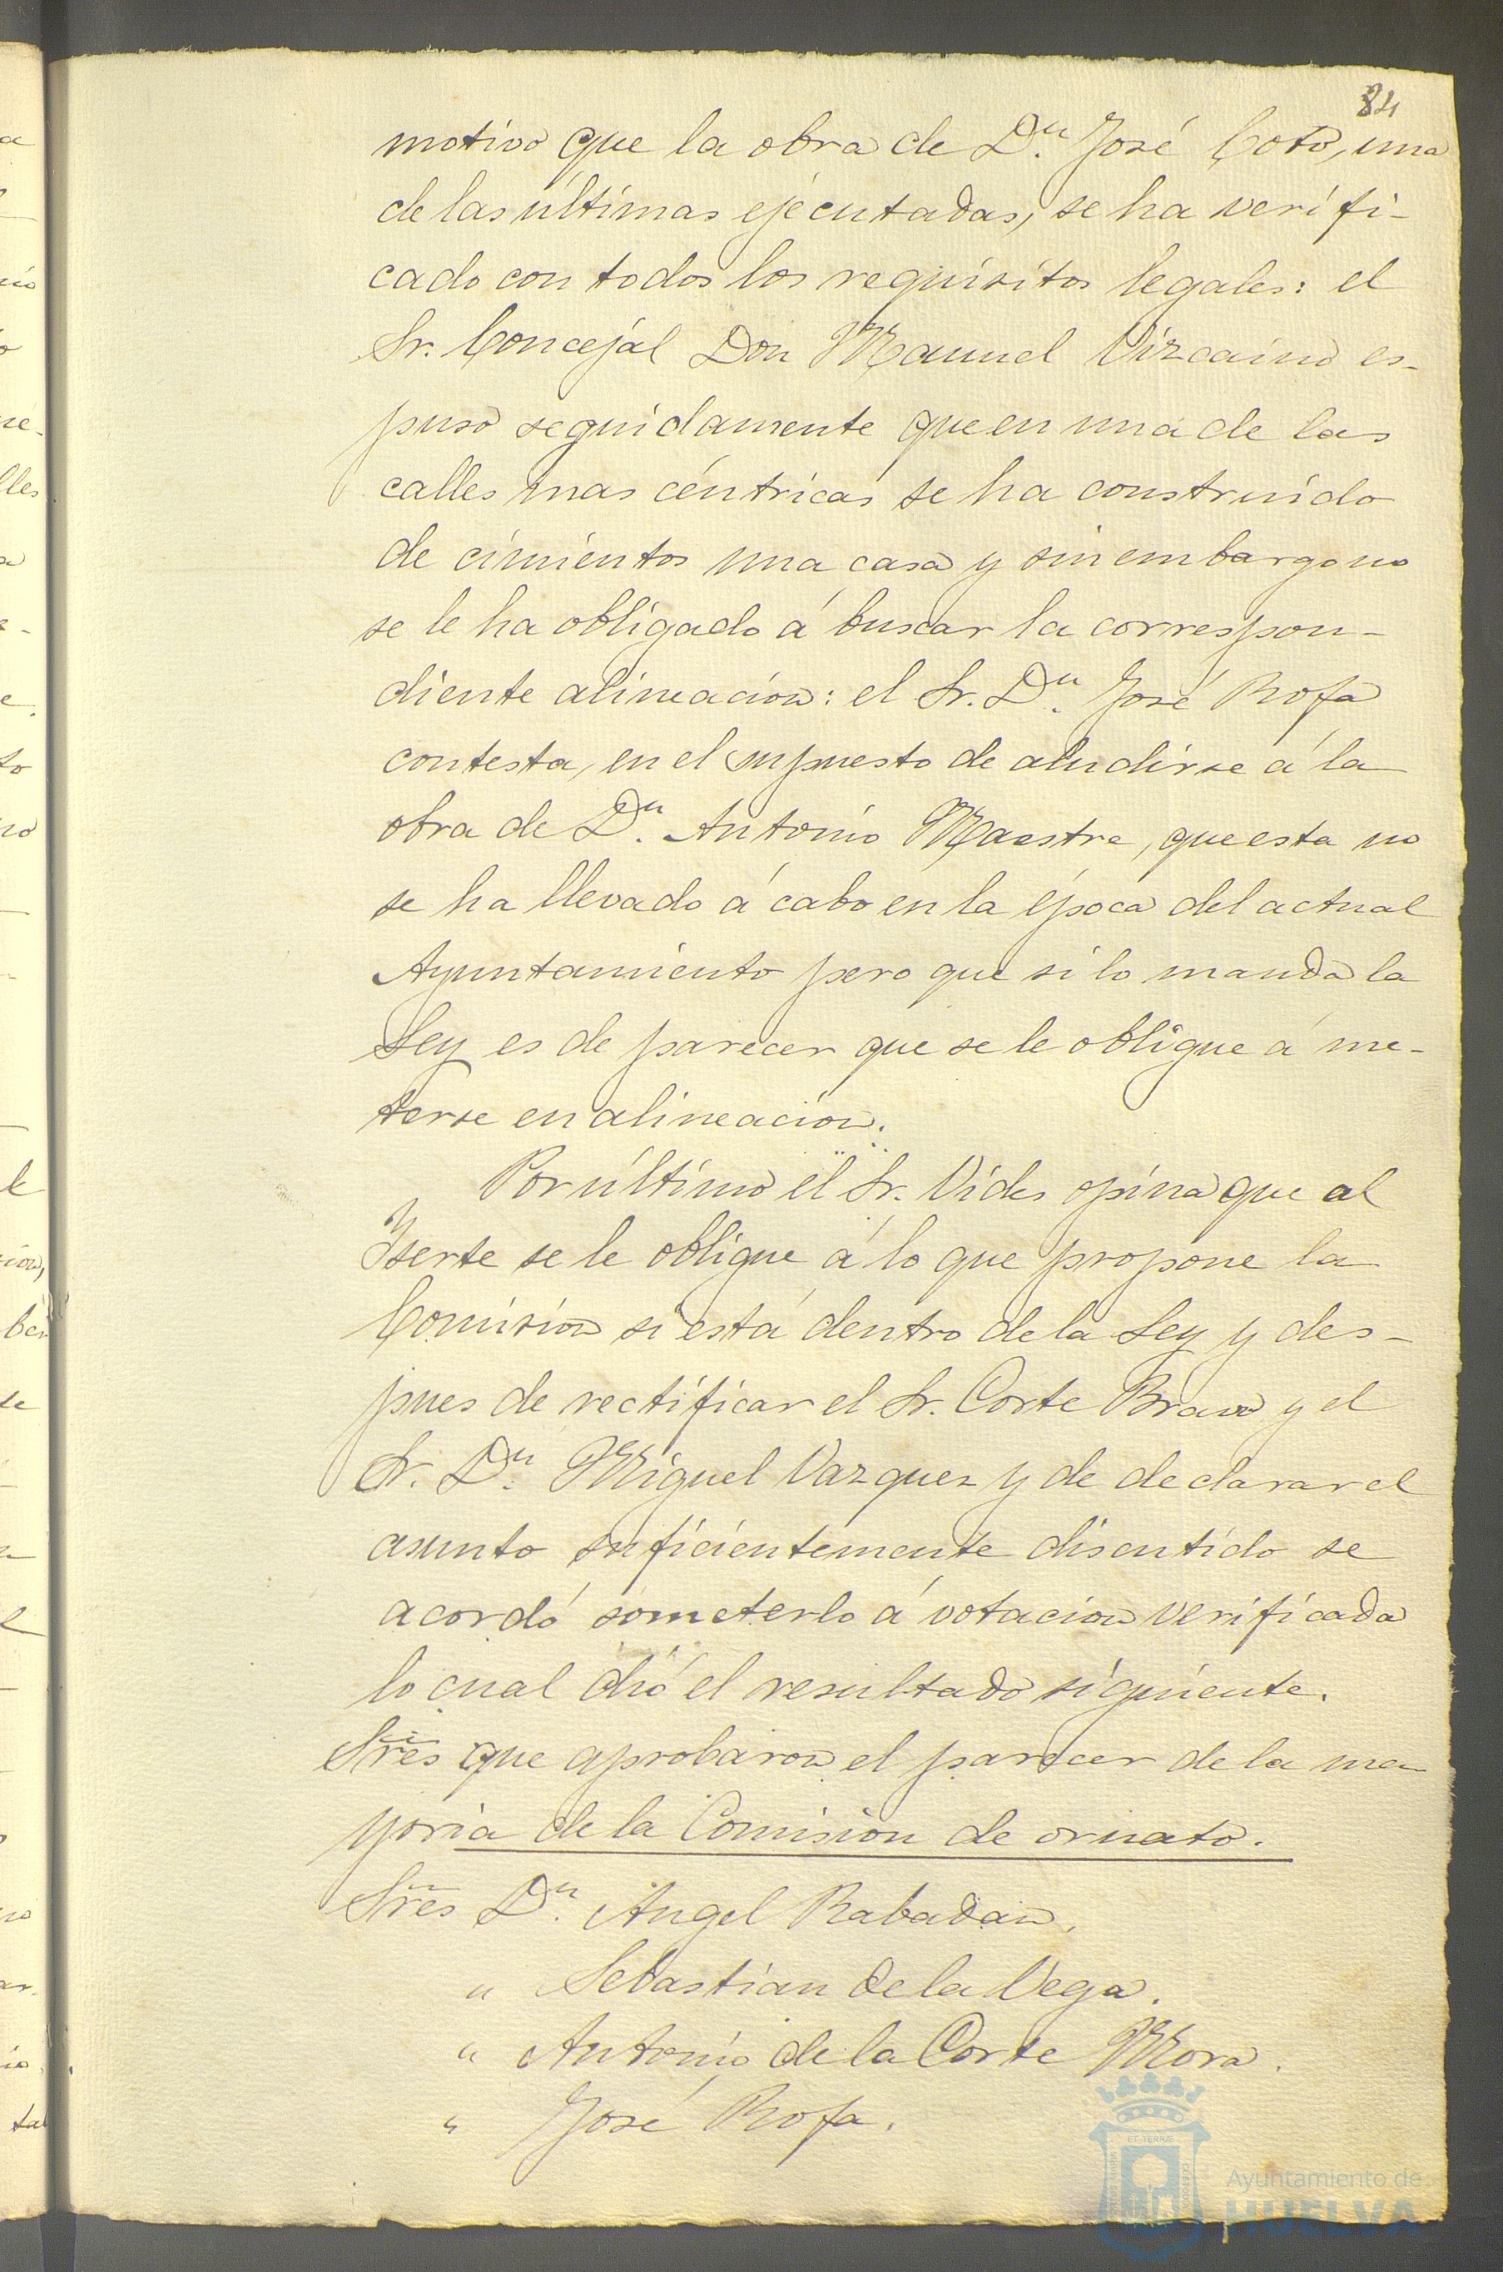 84
motivo que la obra de D.n José Coto, una
de las últimas ejecutadas, se ha verifi-
cado con todos los requisitos legales: el
Sr. Concejal Don Manuel Vizcaino es-
puso seguidamente que en una de las
calles mas céntricas se ha construido
de cimientos una casa y sin embargo no
se le ha obligado á buscar la correspon-
diente alineacion: el Sr. D.n José Rofa
contesta, en el supuesto de aludirse á la
obra de D.n Antonio Maestre, que esta no
se ha llevado á cabo en la época del actual
Ayuntamiento pero que si lo manda la
Ley es de parecer que se le obligue á me-
terse en alineacion.
Por último el Sr. Vides opina que al
Yserte se le obligue á lo que propone la
Comision si está dentro de la Ley y des-
pues de rectificar el Sr. Corte Bravo y el
Sr. D.n Miguel Vazquez y de declarar el
asunto suficientemente discutido se
acordó someterlo á votacion verificada
lo cual dió el resultado siguiente.
Sres que aprobaron el parecer de la ma
yoria de la Comision de ornato.
Sres D.n Angel Rabadan.
" Sebastian de la Vega.
" Antonio de la Corte Mora.
" José Rofa.
Ayuntamiento de
HUELVA